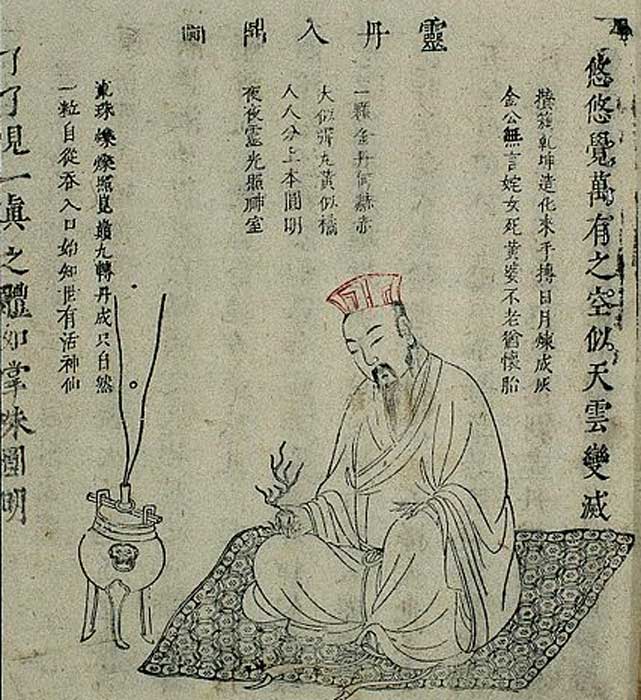 靈丹入鼎圖
悠悠覺萬有之空似天雲變滅
攢簇乾坤造化來手摶日月煉成灰
金公無言姹女死黃婆不老猶懷胎
一顆金丹何赫赤
大似彈丸黃似橘
人人分上本圓明
夜夜靈光照神室
珠爍爍照崑巔九轉丹成只自然
一粒自從吞入口始知世有活神仙
了了現一眞之體如掌珠圓明